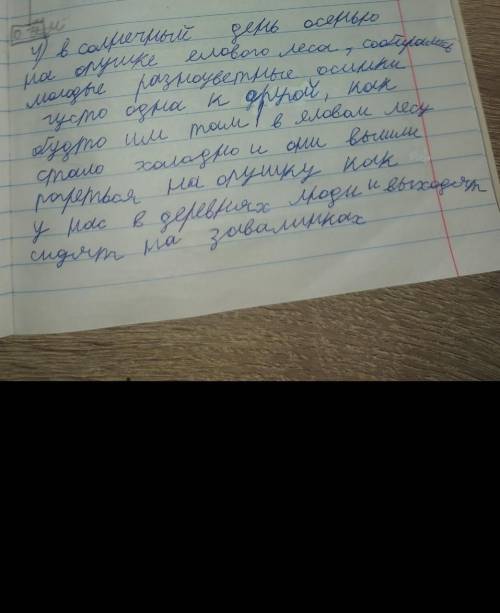 4) в солнечный день осенью
на опушке елового леса, собирались
молодые разноцветные осинки
густо одна к другой, как
будто им там в еловом лесу
стало холодно и они вышли
погреться на опушку как
у нас в деревнях люди и выходят
сидят на завалинках